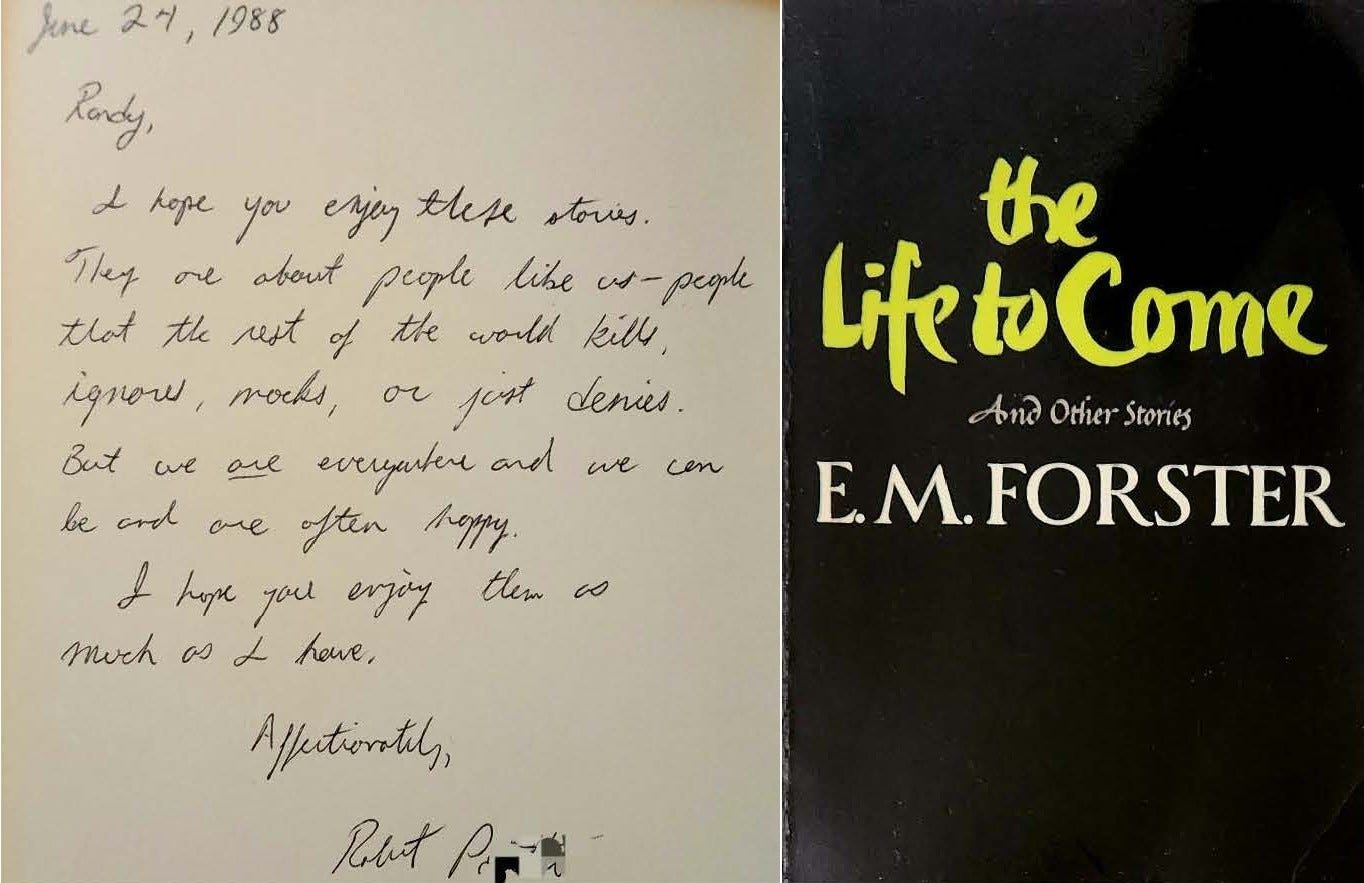 June 24, 1988
Randy,
I hope you enjoy these stories.
They are about people like us – people
that the rest of the world kills,
ignores, mocks, or just denies.
But we are everywhere and we can
be and are often happy.
I hope you enjoy them as
much as I have.
Affectionately,
Robert
the
Life to Come
And Other Stories
E. M. FORSTER